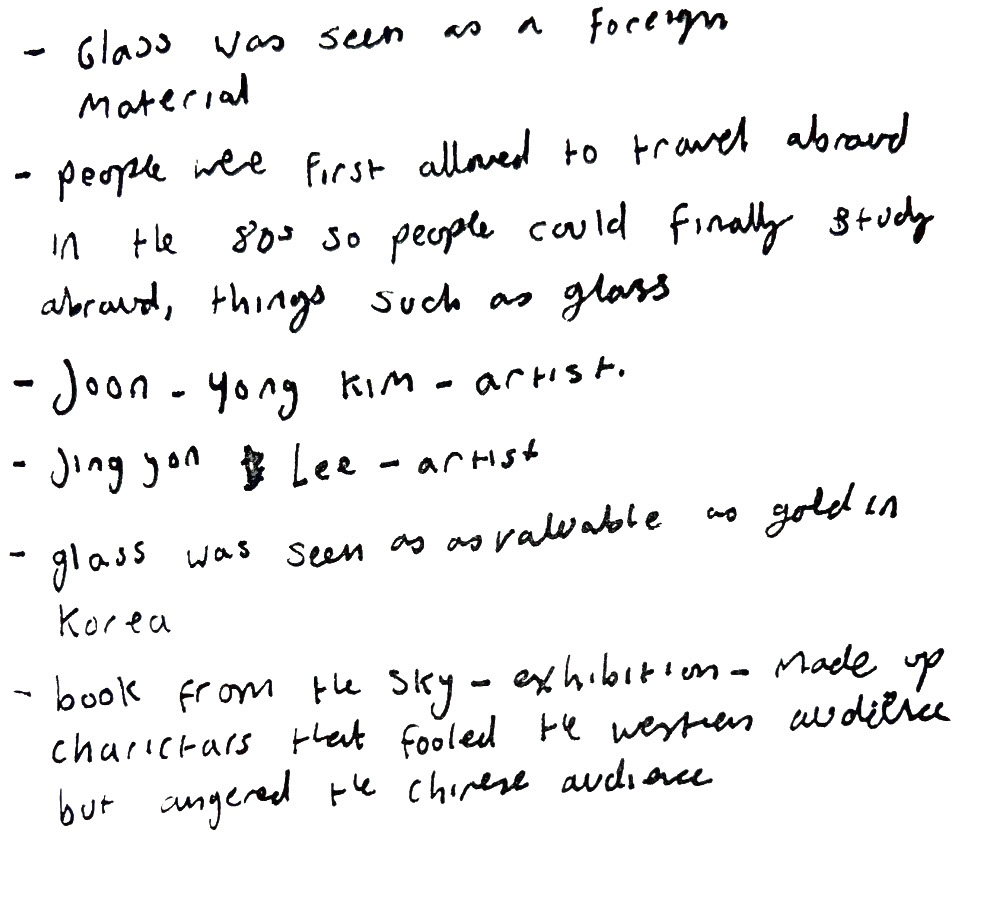 - Glass was seen as a foreign
Material
- people were first allowed to travel abroad
in the 80s so people could finally study
abroad, things such as glass
- Joon - Yong Kim - artist.
- Jingyon Lee - artist
- glass was seen as as valuable as gold in
Korea
- book from the sky - exhibition - Made up
charictars that fooled the western audience
but angered the chinese audience